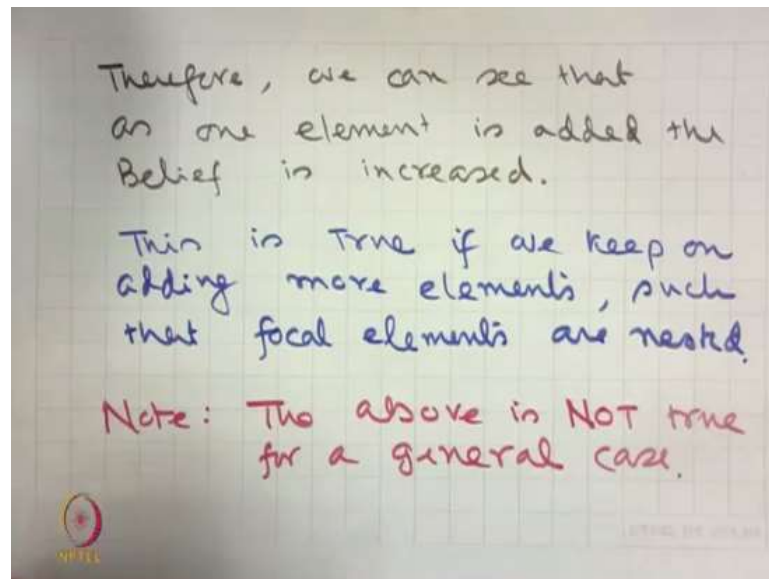 Therefore, we can see that
as one element is added the
Belief is increased.
This is True if we keep on
adding more elements, such
that focal elements are nested.
Note: The above is NOT true
for a general case.
NPTEL